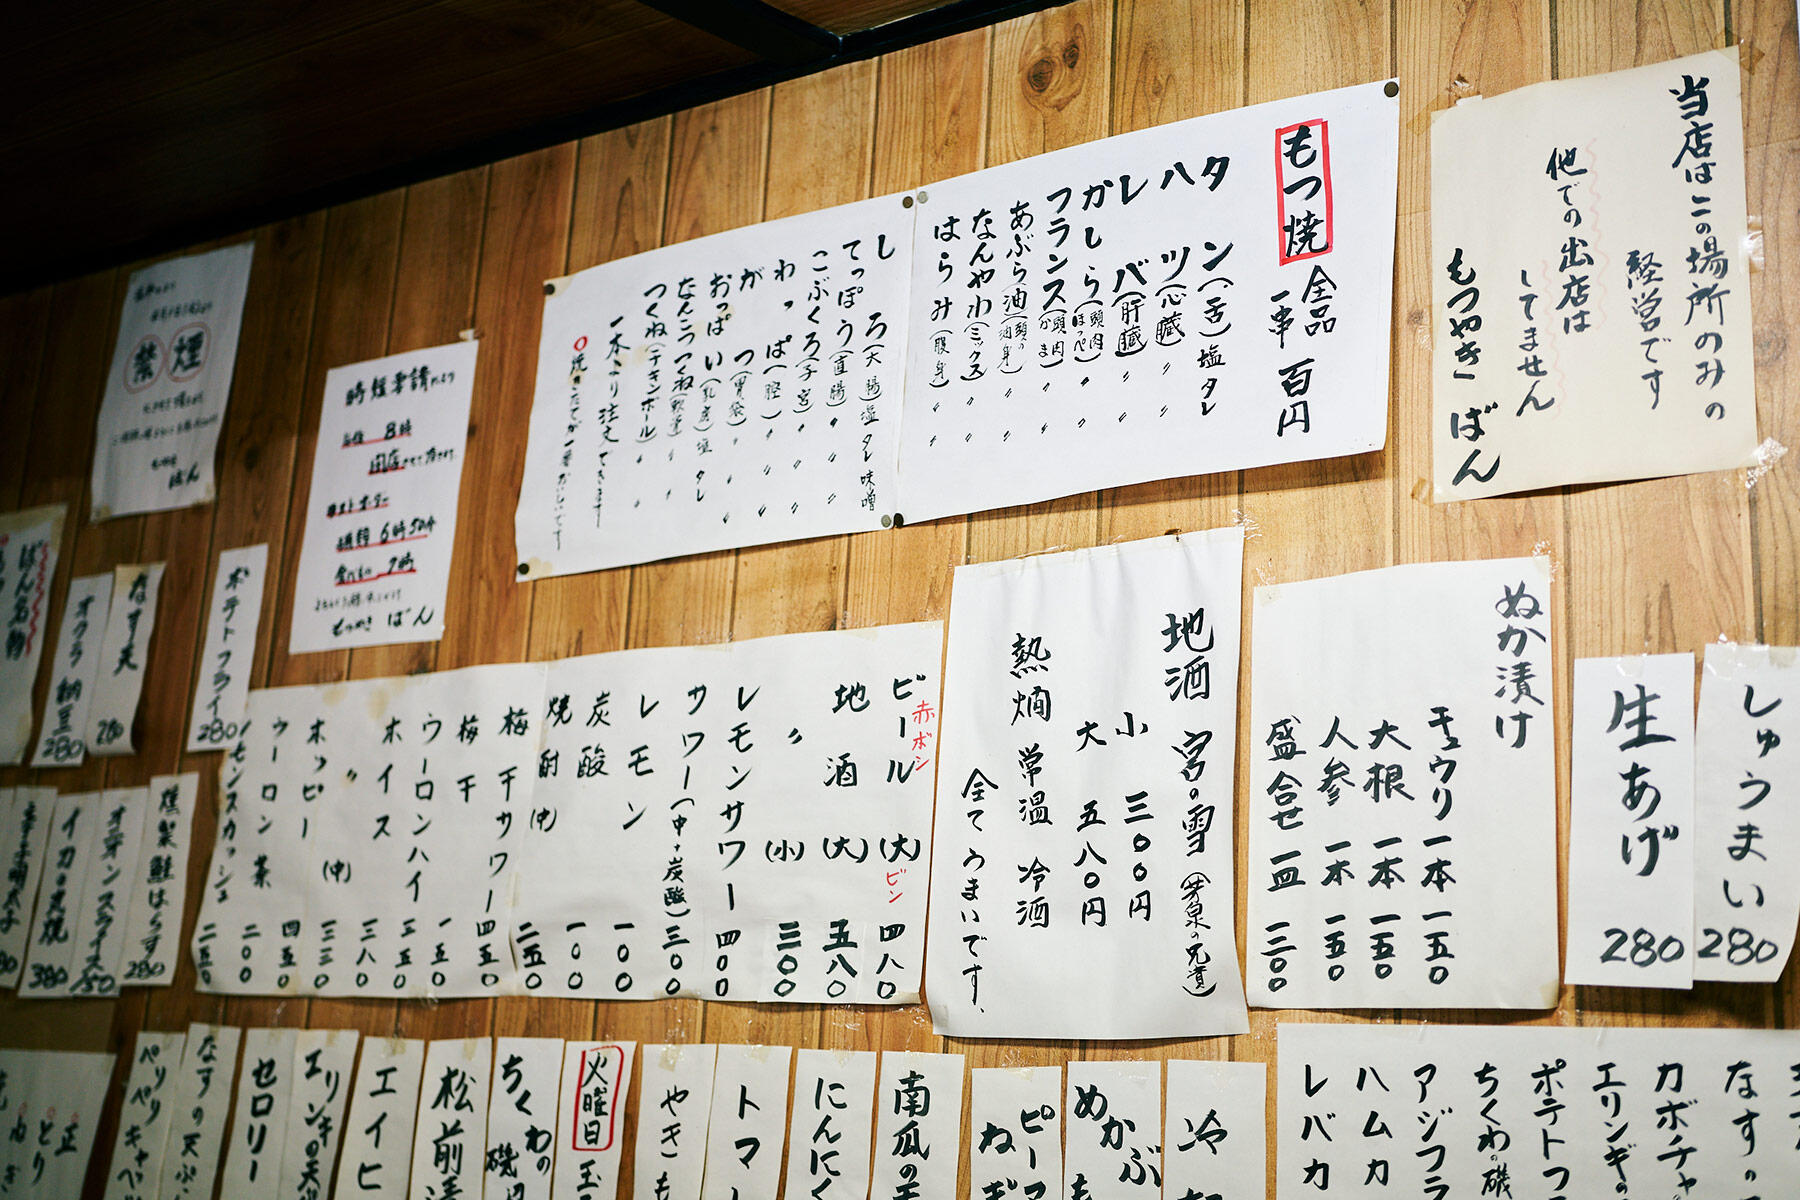 当店はこの場所のみの
経営です
他での出店は
してません
もつやき ばん
もつ焼 全品 一串 百円
タン(舌)塩タレ
ハツ(心臓)〃
レバ(肝臓)〃
かしら(頭肉ほっぺ)〃
フランス(頭肉がま)〃
あぶら(油)〃
なんやわ(ミックス)〃
はらみ(腹身)〃
しろ(大腸)塩タレ味噌
てっぽう(直腸)〃 〃
こぶくろ(子宮)〃 〃
わっぱ(膣)〃 〃
がつ(胃袋)〃 〃
おっぱい(乳房)塩タレ
なんこつつくね(軟骨)〃
つくね(チキンボール)〃
一本より注文できます
○焼きたてが一番おいしいです
時短要請により
8時
閉店させて頂きます
ラストオーダー
6時50分
7時
もつやき ばん
禁煙
ばん
ぬか漬け
キュウリ 一本 一五〇
大根 一本 一五〇
人参 一本 一五〇
盛合せ 一皿 一三〇〇
しゅうまい 280
生あげ 280
地酒 宮の雪(芳泉の兄貴)
小 三〇〇円
大 五八〇円
熱燗 常温 冷酒
全てうまいです、
ビール 赤ボシ (大)ビン 四八〇
地酒(大) 五八〇
〃(小) 三〇〇
レモンサワー 四〇〇
サワー(中+炭酸) 三〇〇
レモン 一〇〇
炭酸 一〇〇
焼酎(中) 二五〇
梅干サワー 四五〇
梅干 一五〇
ウーロンハイ 三五〇
ホイス 三八〇
〃(中) 三三〇
ホッピー 四五〇
ウーロン茶 二〇〇
レモンスカッシュ 二五〇
ポテトフライ 280
なす天 280
オクラ納豆 280
ばん名物
燻製鮭はらす 280
オニオンスライス 150
イカの丸焼 380
辛子明太子
なすの
カボチャ
エリンギの
ポテトフ
ちくわの磯
アジフラ
ハムカ
レバカ
冷
めかぶ
ピーマ
ねぎ
南瓜の天
にんにく
トマ
やき
火曜日
ちくわの磯
松前漬
エイヒ
エリンギの天
セロリー
なすの天ぷ
ペリペリキャベ